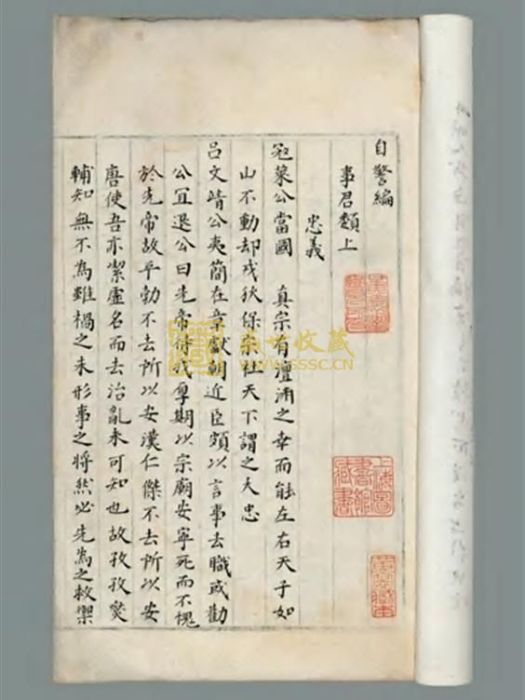 自警編
事君類上
忠義
寇萊公當國　真宗有澶淵之幸而能左右天子如
山不動却戎狄保宗社天下謂之大忠
呂文靖公夷簡在章獻朝近臣頗以言事去職或勸
公宜退公曰先帝待我厚期以宗廟安寧死而不愧
於先帝故平勃不去所以安漢仁傑不去所以安
唐使吾亦潔虛名而去治亂未可知也故孜孜
輔知無不為雖禍之未形事之將然必先為之救禦
上海圖書館藏書
SSSC.CN